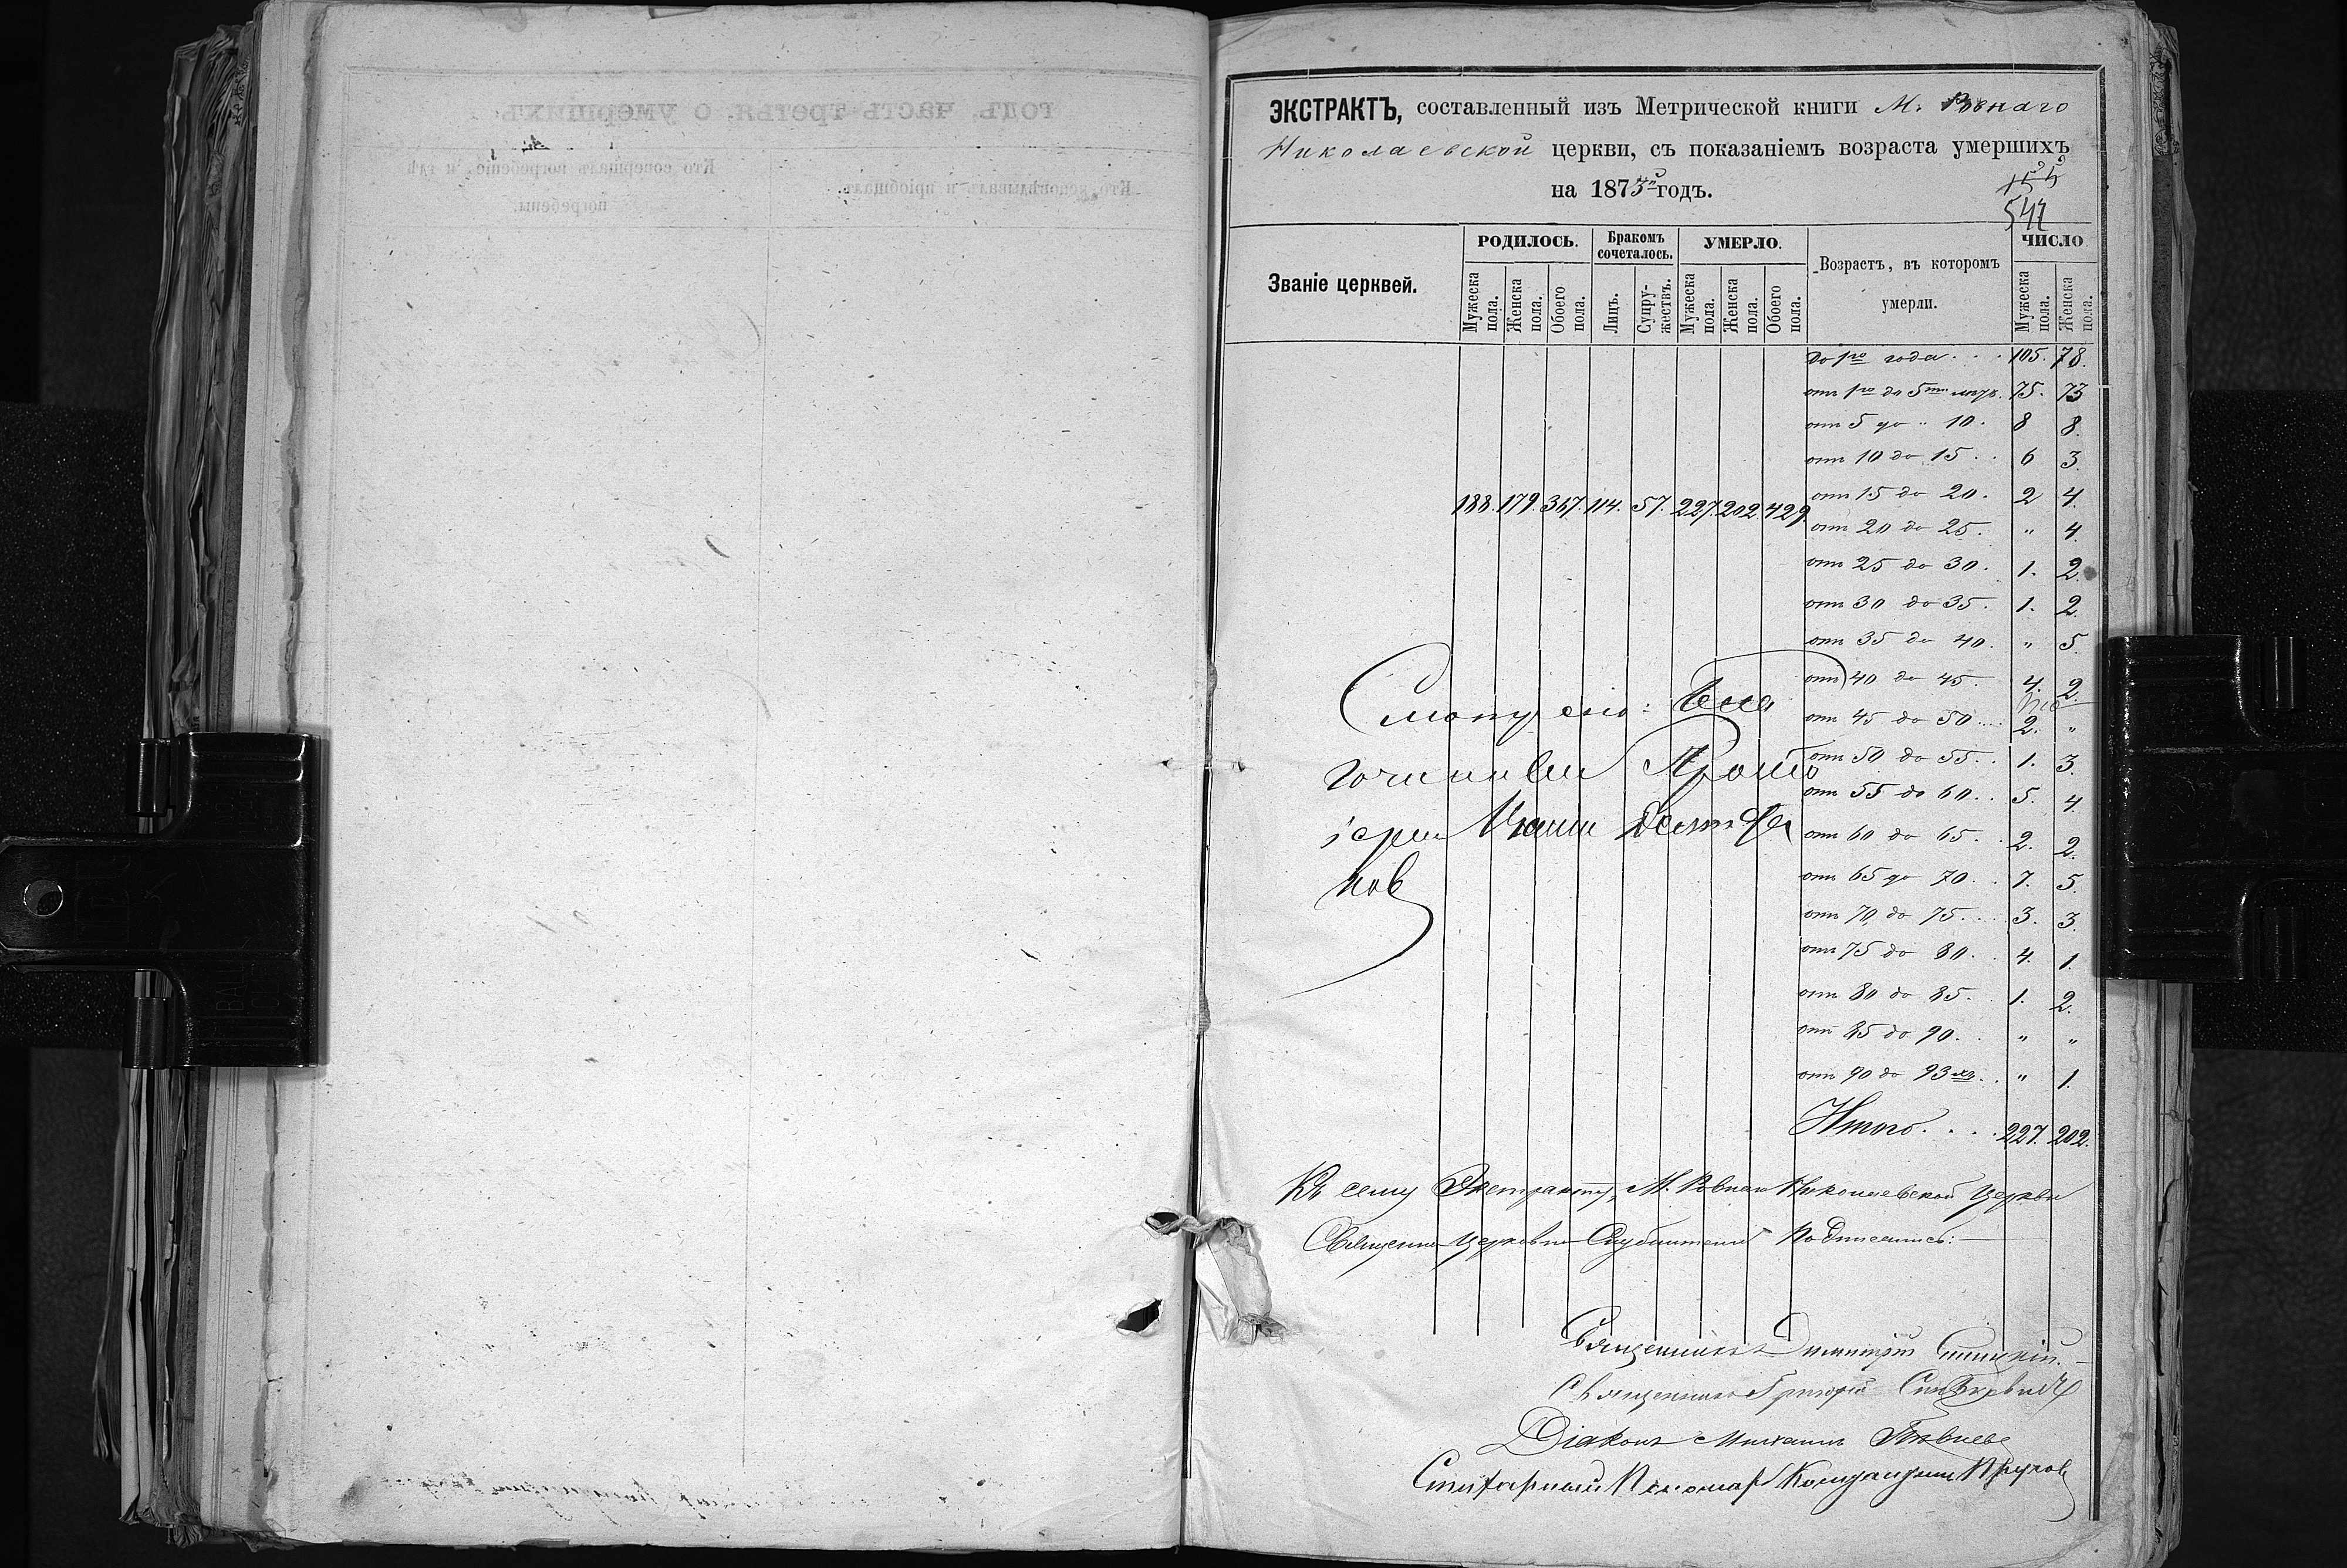 ЭКСТРАКТЪ, составленный изъ Метрической книги М. Ровнаго
Николаевской церкви, съ показаніемъ возраста умершихъ
на 1873й годъ.
155
542
Званіе церквей.
РОДИЛОСЬ.
Бракомъ сочеталось.
УМЕРЛО.
Возрастъ, въ которомъ умерли.
ЧИСЛО
Мужеска пола.
Женска пола.
Обоего пола.
Лицъ.
Супружествъ.
Мужеска пола.
Женска пола.
Обоего пола.
Мужеска пола.
Женска пола.
до 1го года . . . 105. 78.
отъ 1го до 5ти 75. 73
отъ 5 до " 10. 8 8.
отъ 10 до 15 . . 6 3.
188. 179. 367. 114. 57. 227. 202. 429.
отъ 15 до 20. 2 4.
отъ 20 до 25. " 4.
отъ 25 до 30. 1. 2.
отъ 30 до 35. 1. 2.
отъ 35 до 40. " 5.
отъ 40 до 45. 4. 2.
отъ 45 до 50 .... 2. "
отъ 50 до 55. . 1. 3.
отъ 55 до 60. . 5. 4
отъ 60 до 65. . 2. 2.
отъ 65 до 70. . 7. 5.
отъ 70 до 75. . . . 3. 3.
отъ 75 до 80. . 4. 1.
отъ 80 до 85. . 1. 2.
отъ 85 до 90. . " "
отъ 90 до 93 . . " 1.
Итого. . . . 227. 202.
гочинный Прото
іерей
ков
Къ сему Экстракту, М. Ровнаго Николаевской Церкви
Священно Церковно Служители Подписались: —
Священникъ Димитрій
Священникъ Григорій
Діаконъ Михаилъ
Пономар
годъ, часть третья, о умершихъ
Кто исповѣдывалъ и пріобщалъ.
Кто совершалъ погребеніе, и гдѣ погребены.